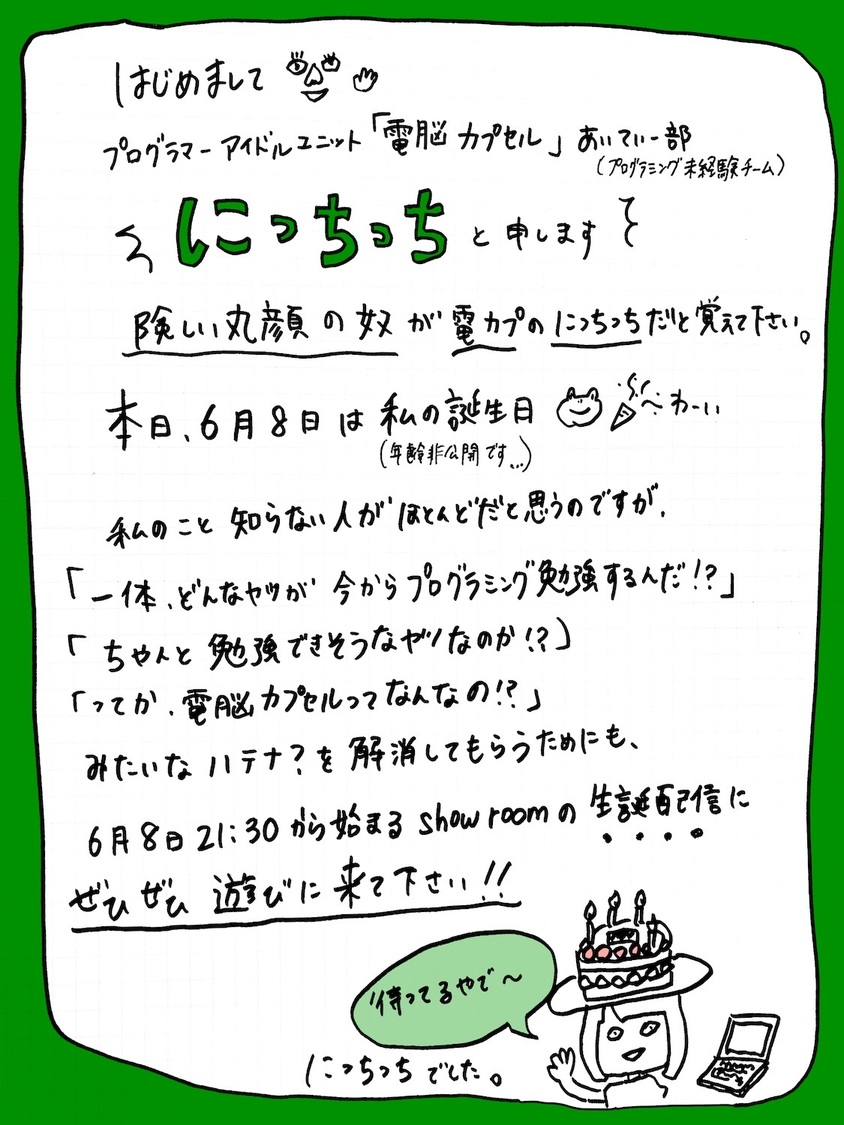 はじめまして
プログラマーアイドルユニット「電脳カプセル」あいてぃー部
(プログラミング未経験チーム)
にっちっち と申します
険しい丸顔の奴が電カプのにっちっちだと覚えて下さい。
本日、6月8日は私の誕生日 わーい
(年齢非公開です...)
私のこと知らない人がほとんどだと思うのですが、
「一体、どんなヤツが今からプログラミング勉強するんだ!?」
「ちゃんと勉強できそうなヤツなのか!?」
「ってか、電脳カプセルってなんなの!?」
みたいなハテナ?を解消してもらうためにも、
6月8日21:30から始まるshowroomの生誕配信に
ぜひぜひ遊びに来て下さい!!
待ってるやで~
にっちっちでした。